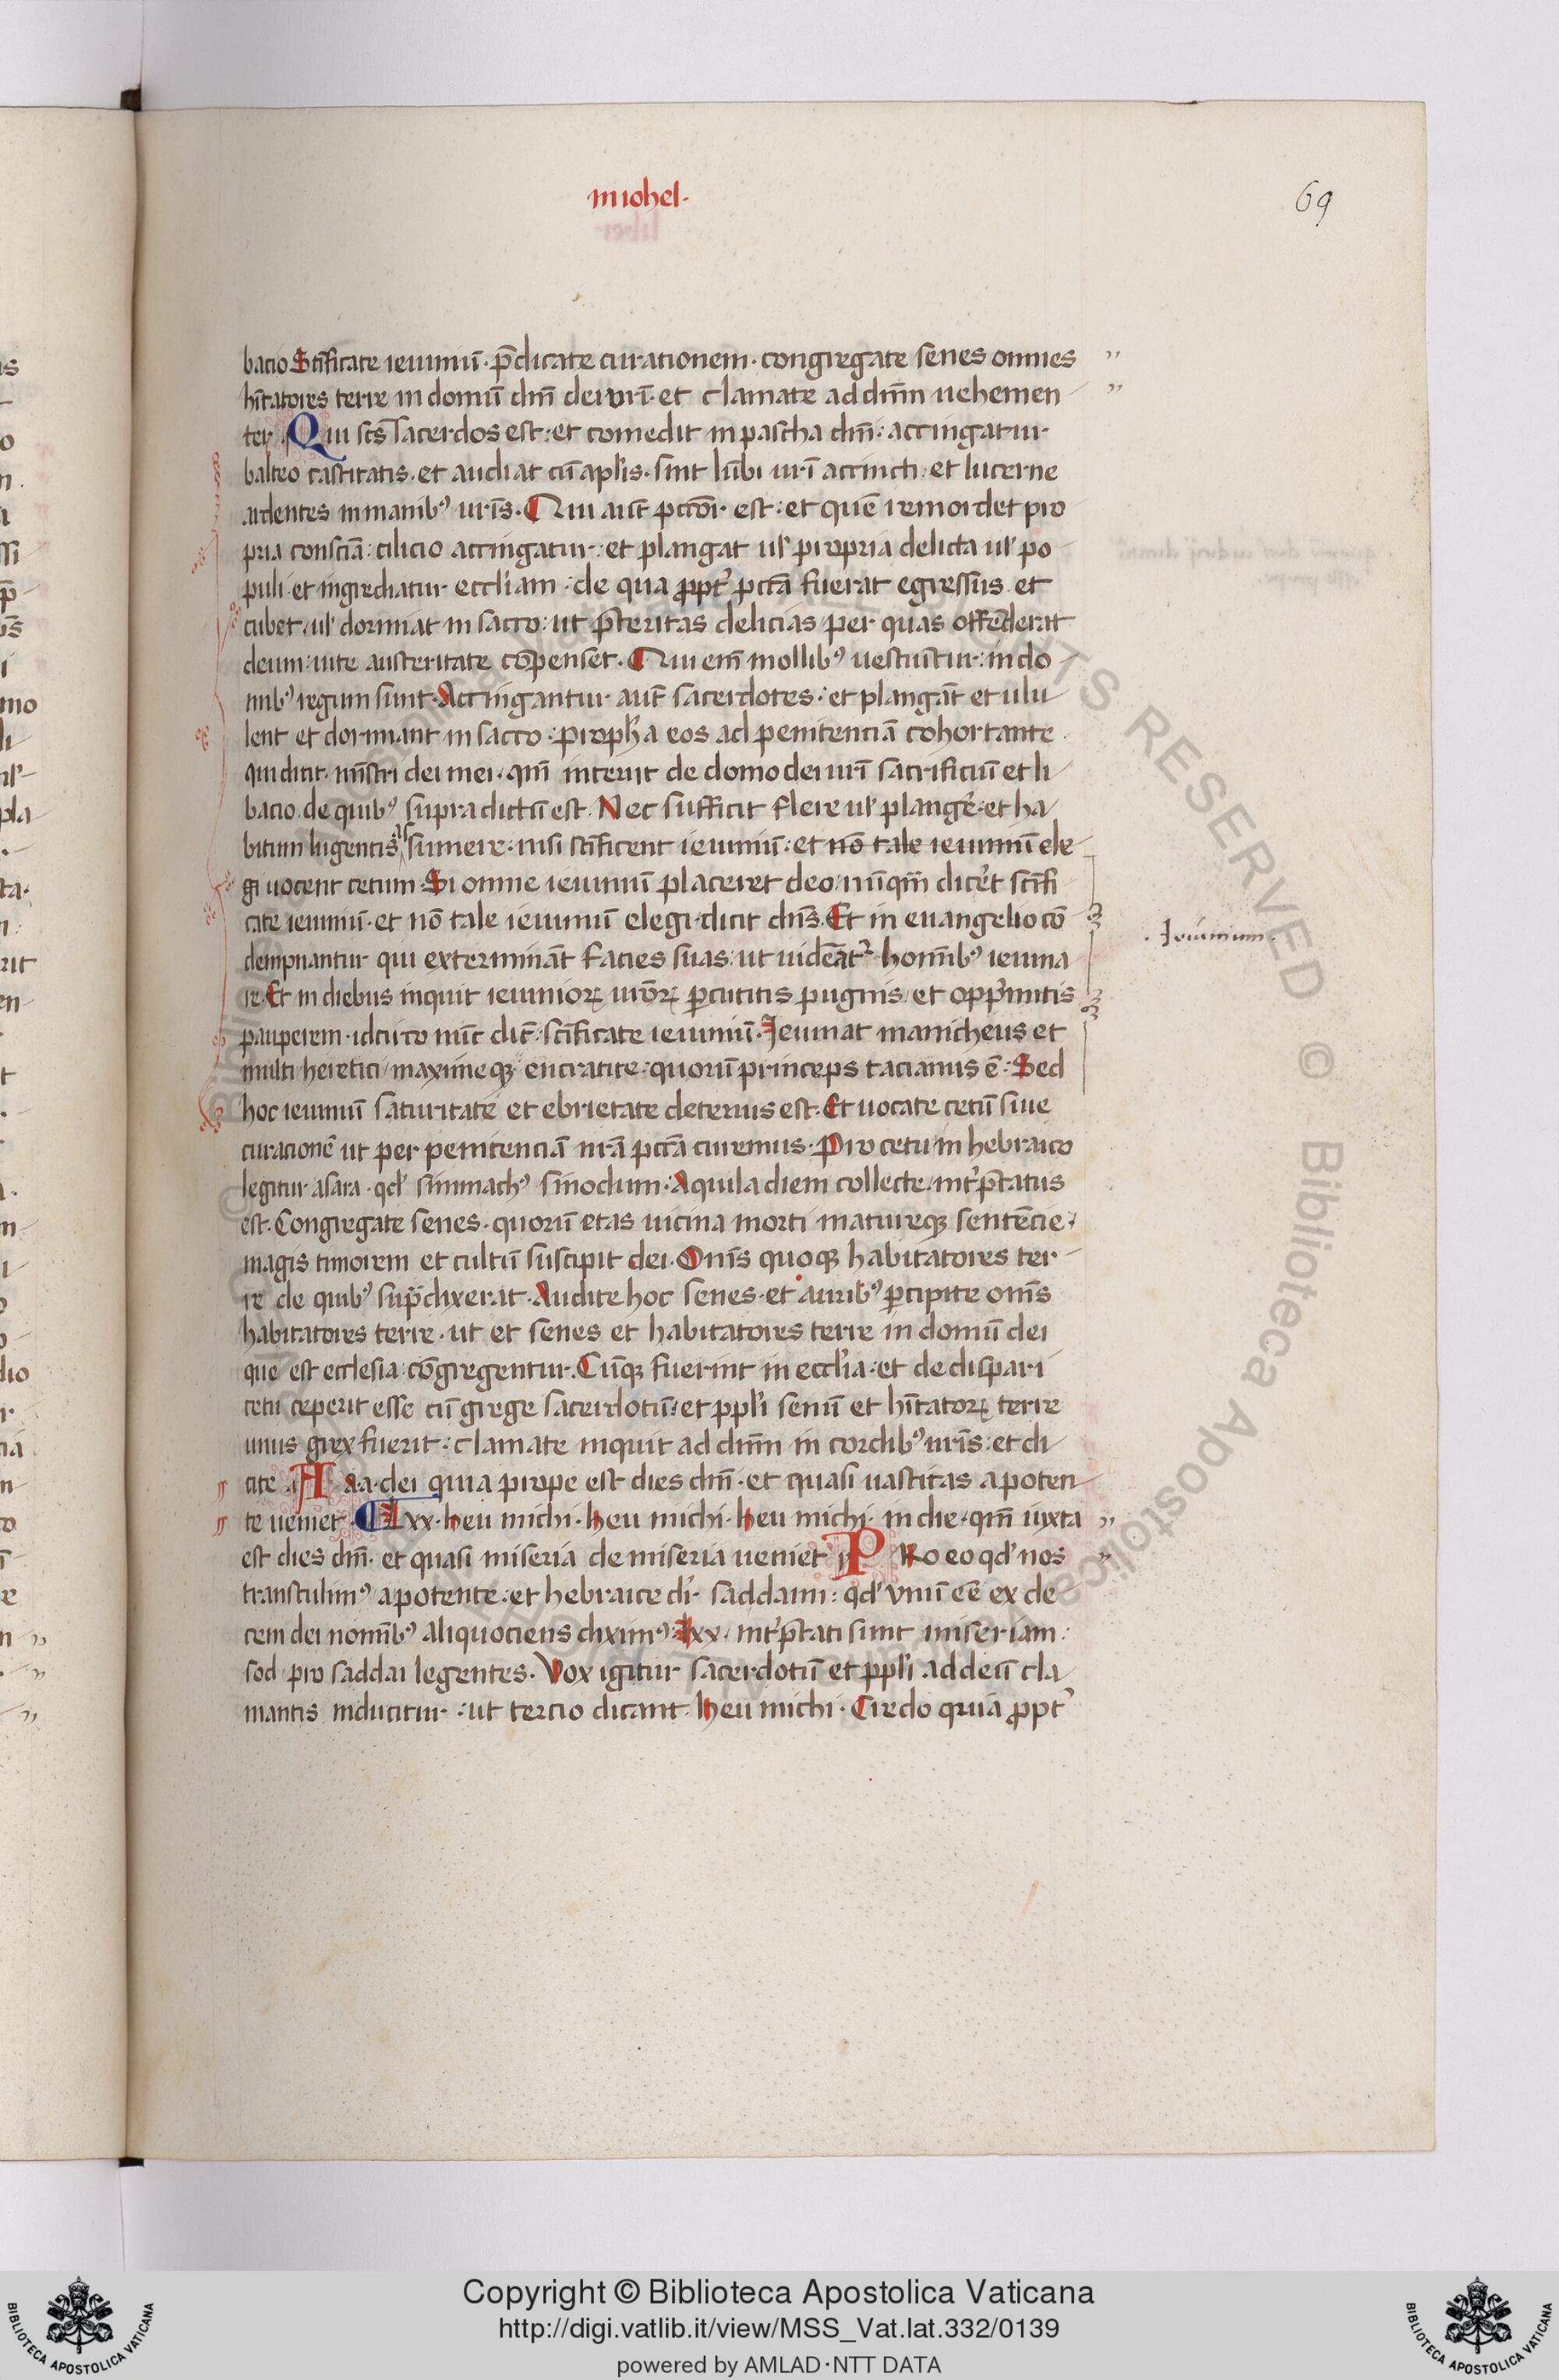 miohel·
69
bacio Sc̄ificate ieiuniū· p̄dicate curationem· congregate senes omnes
hītatores terre in domū dn̄i dei vr̄i· et clamate ad dn̄m uehemen
ter. Qui sc̄s sacerdos est: et comedit in pascha dn̄i: accingatur
balteo castitatis. et audiat cū apl̄is. sint lūbi ur̄i accincti: et lucerne
ardentes in manibꝰ ur̄is. Qui aut̄ pctōr est: et quē remordet pro
pria consciā: cilicio accingatur: et plangat ul̓ propria delicta ul̓ po
puli· et ingrediatur eccl̓iam: de qua ꝓpt̓ pctā fuerat egressus. et
cubet, ul̓ dormiat in sacco: ut p̄teritas delicias per quas offēderat
deum: uite austeritate cōpenset. Qui em̄ mollibꝰ uestiūtur: in do
mibꝰ regum sunt. Accingantur aut̄ sacerdotes: et plangāt et ulu
lent et dormiant in sacco: proph̄a eos ad penitenciā cohortante.
qui dicit. mīstri dei mei. qm̄ interiit de domo dei ur̄i sacrificiū et li
bacio. de quibꝰ supra dictū est. Nec sufficit flere ul̓ plangē̓: et ha
bitum lugentis sumere: nisi sc̄ificent ieiuniū: et nō tale ieiuniū ele
gi uocent cetum. Si omne ieiuniū placeret deo: nūqm̄ dicēt sc̄ifi
cate ieiuniū· et nō tale ieiuniū elegi· dicit dn̄s. Et in euangelio cō
dempnantur qui extermināt facies suas: ut uideāt̓ homībꝰ ieiuna
re. Et in diebus inquit ieiunioꝝ ur̄oꝝ ꝑcutitis pugnis: et opp̓mitis
pauperem· idcirco nūc dic̄: sc̄ificate ieiuniū. Ieiunat manicheus et
multi heretici, maximeqꝫ encratite: quorū princeps tacianus ē: Sed
hoc ieiuniū saturitate et ebrietate deterius est. Et uocate cetū siue
curacionē ut per penitenciā nr̄ā pctā curemus. Pro cetu in hebraico
legitur asara· qd̓ simmachꝰ sinodum· Aquila diem collecte int̓p̄tatus
est. Congregate senes. quorū etas uicina morti matureqꝫ sentēcie,
magis timorem et cultū suscipit dei. Om̄s quoqꝫ habitatores ter
re de quibꝰ sup̄dixerat. Audite hoc senes. et auribꝰ ꝑcipite om̄s
habitatores terre· ut et senes et habitatores terre in domū dei
que est ecclesia: cōgregentur. Cūqꝫ fuerint in eccl̓ia: et de dispari
cetu ceperit esse cū grege sacerdotū: et ppl̓i senū et hītatoꝝ terre
unus grex fuerit: clamate inquit ad dn̄m in cordibꝰ ur̄is: et di
cite A a.a.dei quia prope est dies dn̄i· et quasi uastitas a poten
te ueniet. Lxx. heu michi. heu michi. heu michi. in die. qm̄ iuxta
est dies dn̄i. et quasi miseria de miseria ueniet PRo eo qd̓ nos
transtulimꝰ a potente: et hebraice dr̄. saddaim: qd̓ vnū eē ex de
cem dei nomībꝰ aliquociens diximꝰ: Lxx. int̓p̄tati sunt miseriam:
sod pro saddai legentes. Vox igitur sacerdotū et ppl̓i ad deū cla
mantis inducitur: ut tercio dicant heu michi. Credo quia ꝓpt̓
. Ieiunium.
Copyright © Biblioteca Apostolica Vaticana
http://digi.vatlib.it/view/MSS_Vat.lat.332/0139
powered by AMLAD·NTT DATA